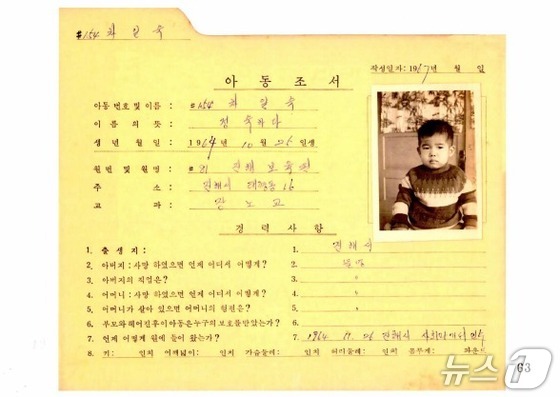 #154 최 일 숙
작성일자: 1967년 월 일
아 동 조 서
아동 번호 및 이름 : #154 최 일 숙
이 름 의 뜻 : 정숙하다
생 년 월 일 : 1964년 10 월 26 일생
원 번 및 원 명 : 진해 보육원
주 소 : 진해시
교 파 : 장 노 교
경 력 사 항
1. 출 생 지 : 1. 진해시
2. 아버지 : 사망 하였으면 언제 어디서 어떻게? 2. 불명
3. 아버지의 직업은? 3. 〃
4. 어머니 : 사망 하였으면 언제 어디서 어떻게? 4. 〃
5. 어머니가 살아 있으면 어머니의 형편은? 5. 〃
6. 부모와 헤어진후 이 아동은 누구의 보호를 받았는가? 6. 〃
7. 언제 어떻게 원에 들어 왔는가? 7. 1964. 11. 26 진해시
8. 키: 인치 어깨넓이: 인치 가슴둘레: 인치 머리둘레: 인치 몸무게: 파운
63
뉴스1